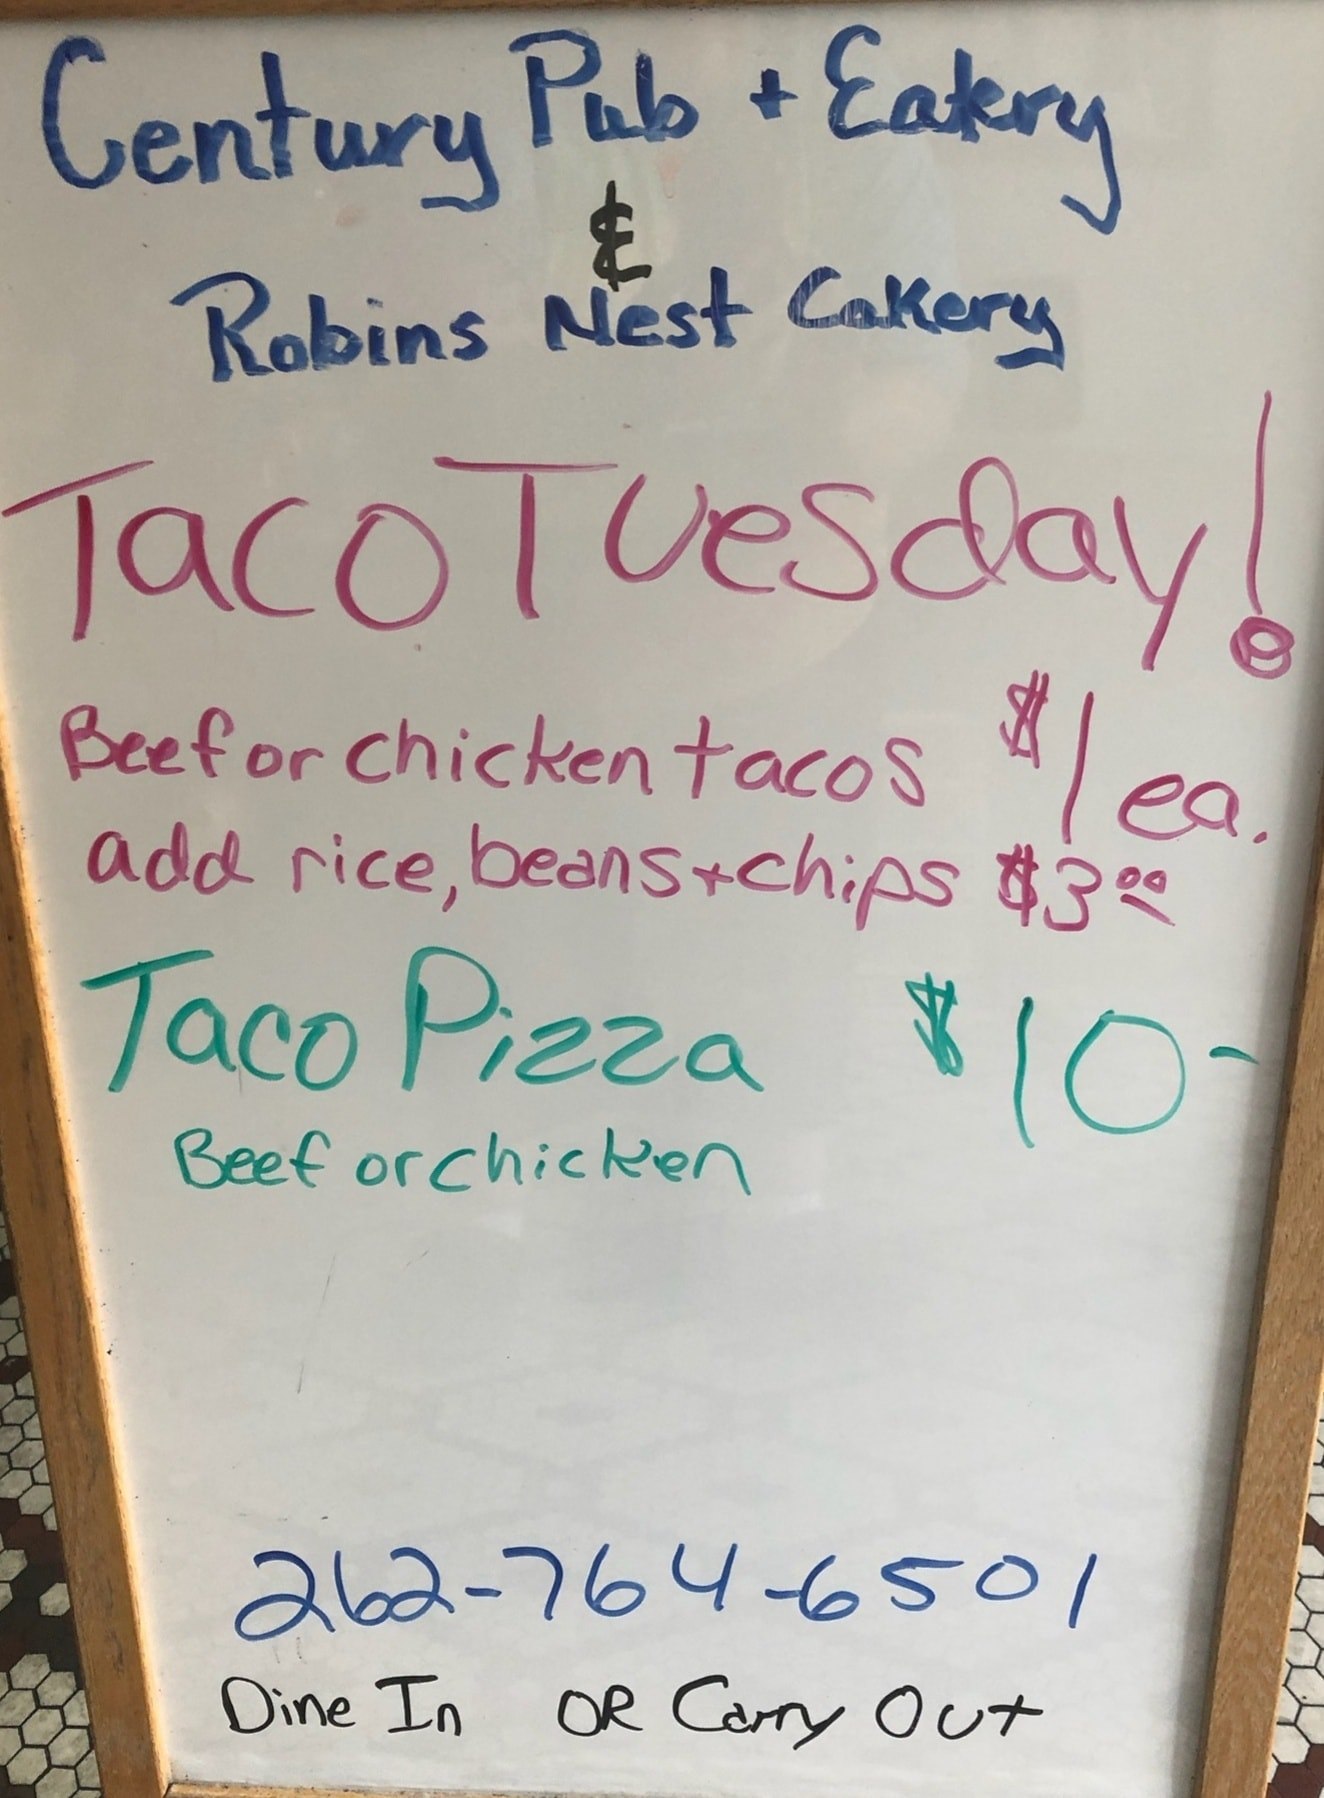 Century Pub + Eatery
&
Robins Nest Cakery
Taco Tuesday!
Beef or chicken tacos $1 ea.
add rice, beans + chips $3.00
Taco Pizza $10-
Beef or chicken
262-764-6501
Dine In OR Carry Out